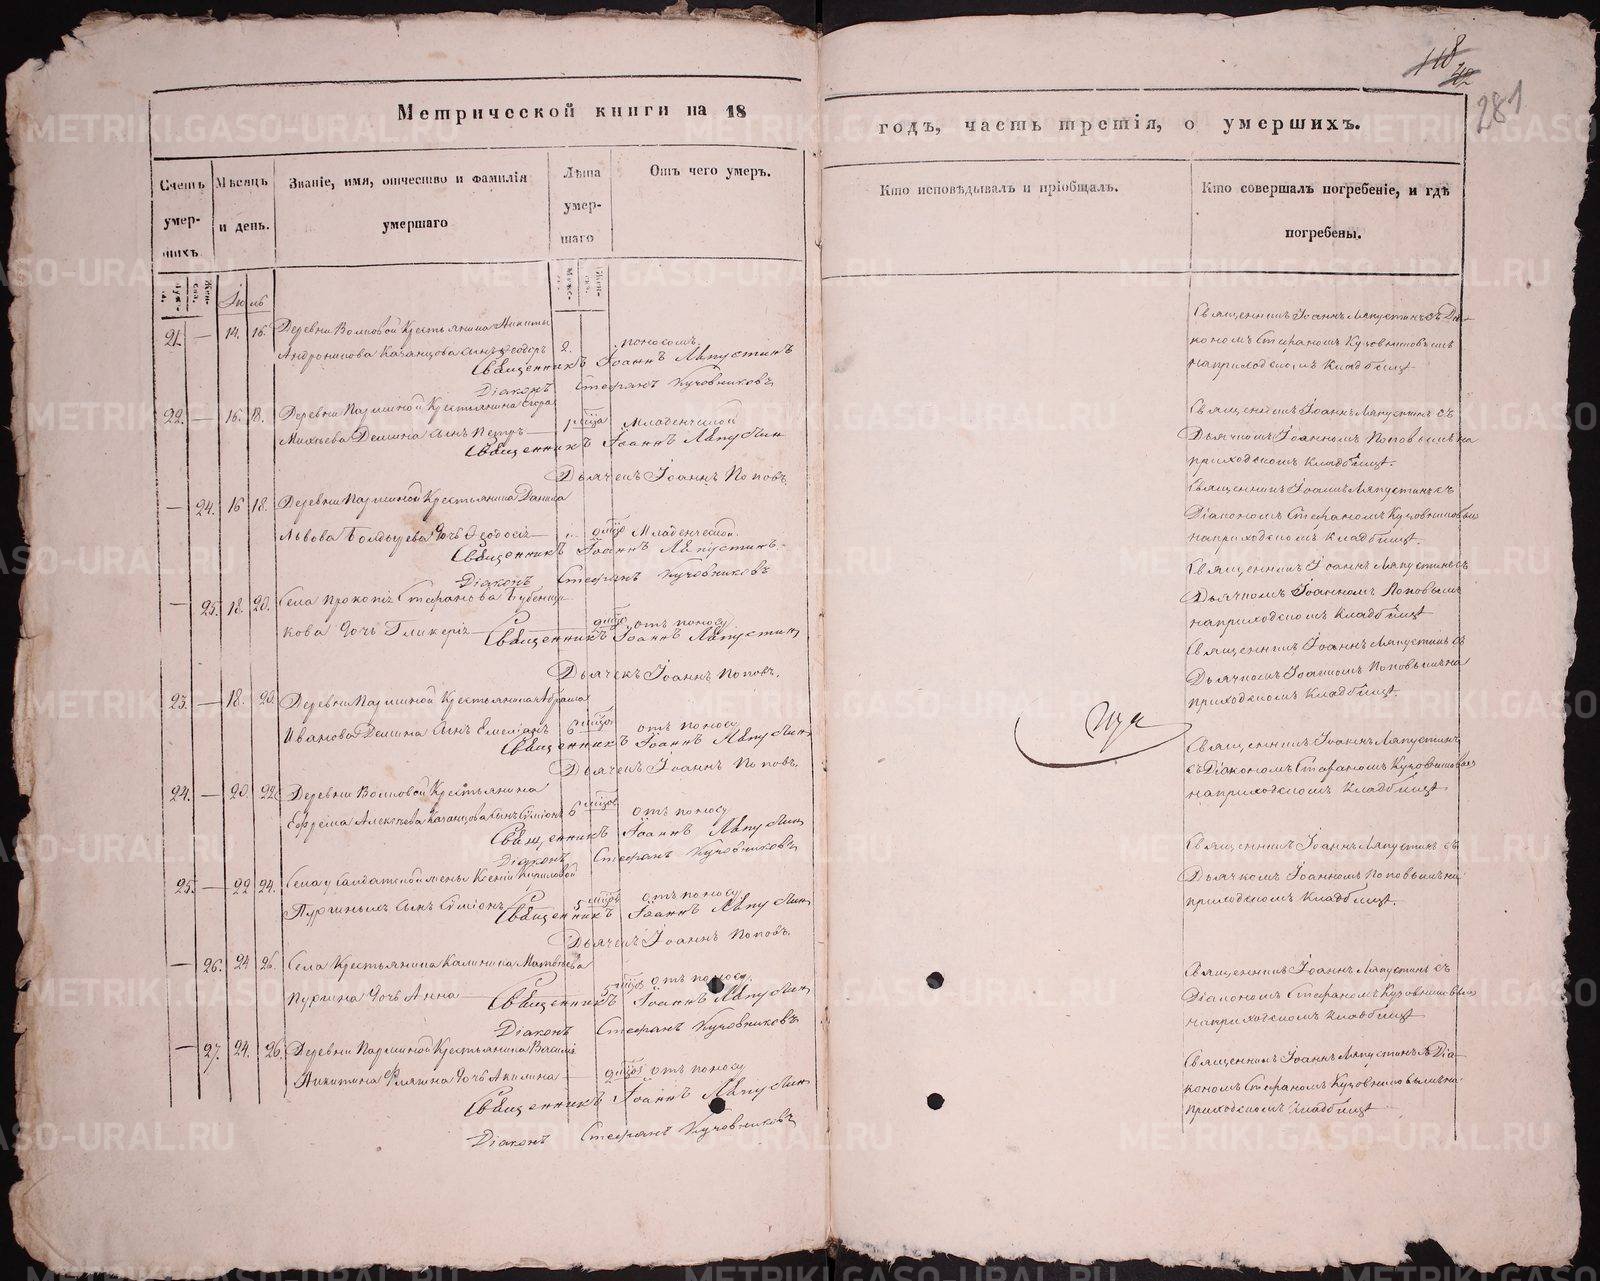 118
42
281
Метрической книги на 18
годъ, часть третія, о умершихъ.
Счетъ умер-шихъ
Мѣсяцъ и день.
Званіе, имя, отчество и фамилія умершаго
Лѣта умер-шаго
Отъ чего умеръ.
Кто исповѣдывалъ и пріобщалъ.
Кто совершалъ погребеніе, и гдѣ погребены.
Іюль
21. — 14. 16. Деревни Волковой Крестьянина Никиты
Андроникова Казанцова сынъ Ѳеодоръ 2. поносомъ
Священникъ Іоаннъ Ляпустинъ
Діаконъ Стефанъ Кузовниковъ
Священникъ Іоаннъ Ляпустинъ съ Діа-
кономъ Стефаномъ Кузовниковымъ
на приходскомъ Кладбищѣ
22. — 16. 18. Деревни Паршиной Крестьянина
Михѣева Демина сынъ Петръ 1 мѣсяца Младенческой
Священникъ Іоаннъ Ляпустинъ
Дьячекъ Іоаннъ Поповъ.
Священникъ Іоаннъ Ляпустинъ съ
Дьячкомъ Іоанномъ Поповымъ на
приходскомъ Кладбищѣ.
— 24. 16 18. Деревни Паршиной Крестьянина Данила
Львова Болдырева дочь Ѳеодосія Младенческой.
Священникъ Іоаннъ Ляпустинъ.
Діаконъ Стефанъ Кузовниковъ
Священникъ Іоаннъ Ляпустинъ съ
Діакономъ Стефаномъ Кузовниковымъ
на приходскомъ Кладбищѣ.
— 25. 18. 20. Села Прокопія Стефанова Бубенщи-
кова дочь Гликерія отъ поносу
Священникъ Іоаннъ Ляпустинъ
Дьячекъ Іоаннъ Поповъ.
Священникъ Іоаннъ Ляпустинъ съ
Дьячкомъ Іоанномъ Поповымъ
на приходскомъ Кладбищѣ
23. — 18. 20. Деревни Паршиной Крестьянина Абрама
Иванова Демина сынъ Емеліанъ 6 мѣсяцовъ отъ поносу
Священникъ Іоаннъ Ляпустинъ
Дьячекъ Іоаннъ Поповъ.
Священникъ Іоаннъ Ляпустинъ съ
Дьячкомъ Іоанномъ Поповымъ на
приходскомъ Кладбищѣ.
24. — 20. 22. Деревни Волковой Крестьянина
Ефрема Алексѣева Казанцова сынъ Симіонъ 6 мѣсяцовъ отъ поносу
Священникъ Іоаннъ Ляпустинъ
Діаконъ Стефанъ Кузовниковъ
Священникъ Іоаннъ Ляпустинъ
съ Діакономъ Стефаномъ Кузовниковымъ
на приходскомъ Кладбищѣ
25. — 22 24. Села у солдатской жены Ксеніи Кириловой
Пургиныхъ сынъ Симіонъ 5 мѣсяцовъ отъ поносу
Священникъ Іоаннъ Ляпустинъ
Дьячекъ Іоаннъ Поповъ.
Священникъ Іоаннъ Ляпустинъ съ
Дьячкомъ Іоанномъ Поповымъ на
приходскомъ Кладбищѣ.
— 26. 24 26. Села Крестьянина Калиника Матвѣева
Пургина дочь Анна 5 отъ поносу
Священникъ Іоаннъ Ляпустинъ
Діаконъ Стефанъ Кузовниковъ
Священникъ Іоаннъ Ляпустинъ съ
Діакономъ Стефаномъ Кузовниковымъ
на приходскомъ Кладбищѣ
— 27. 24. 26. Деревни Паршиной Крестьянина Василія
Никитина дочь Акилина отъ поносу
Священникъ Іоаннъ Ляпустинъ
Діаконъ Стефанъ Кузовниковъ
Священникъ Іоаннъ Ляпустинъ съ Діа-
кономъ Стефаномъ Кузовниковымъ на
приходскомъ Кладбищѣ
METRIKI.GASO-URAL.RU